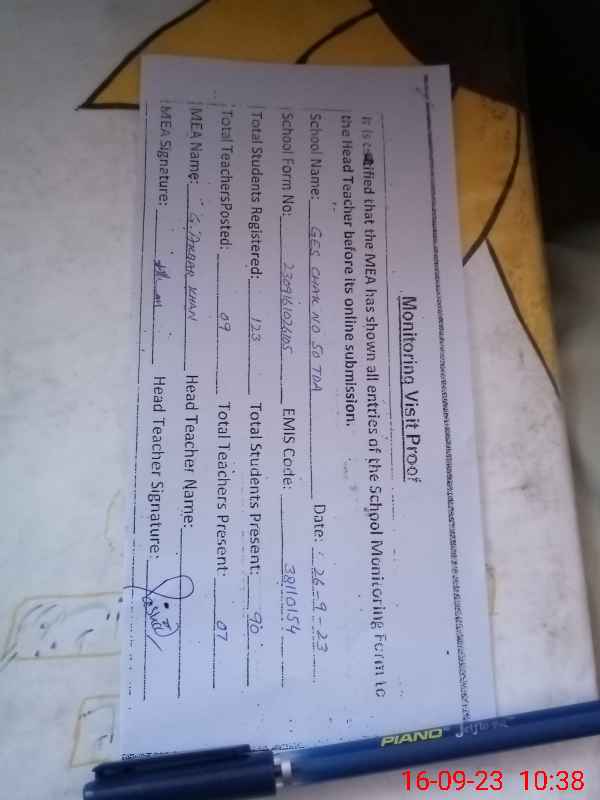 Monitoring Visit Proof
It is certified that the MEA has shown all entries of the School Monitoring Form to
the Head Teacher before its online submission.
School Name: GES CHAK NO 50 TDA Date: 26-9-23
School Form No: EMIS Code: 38110154
Total Students Registered: 123 Total Students Present: 90
Total TeachersPosted: 09 Total Teachers Present: 07
MEA Name: G. AKBAR KHAN Head Teacher Name:
MEA Signature: Head Teacher Signature:
PIANO
16-09-23 10:38